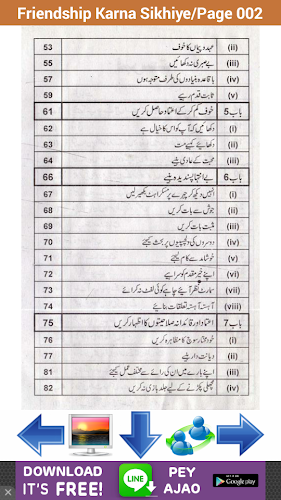 Friendship Karna Sikhiye/Page 002
(ii) عہد و پیماں کا خوف 53
(iii) بے صبری نہ دکھائیں 55
(iv) باقاعدہ بنیادوں کی طرف متوجہ ہوں 57
(v) ثابت قدم رہیے 59
باب 5 خوف کم کر کے اعتماد حاصل کریں 61
(i) دکھائیں کہ آپ کو اس کا خیال ہے 62
(ii) دکھائیے کیسے مت 63
(iii) محبت کے عادی بنیے 64
باب 6 بے انتہا پسندیدہ بنیے 66
(i) انہیں دیکھ کر چہرے پر مسکراہٹ بکھیر لیں 67
(ii) جوش سے بات کریں 68
(iii) مثبت بات کریں 69
(iv) دوسروں کی دلچسپیوں پر بحث کیجئے 70
(v) خوشامد سے کام لیجئے 71
(vi) اپنے خیر مقدم کو سراہیے 72
(vii) سمارٹ نظر آئیے چاہے کوئی لفٹ نہ کرائے 73
(viii) آہستہ آہستہ تعلقات بنائیے 74
باب 7 اعتماد اور قائدانہ صلاحیتوں کا اظہار کریں 75
(i) خود مختار سوچ کا مظاہرہ کریں 76
(ii) دیانت دار بنیے 77
(iii) اپنے بارے میں ان کی رائے سے مختلف عمل کیجئے 81
(iv) مچھلی پکڑنے کے لیے جلد بازی نہ کریں 82
DOWNLOAD
IT'S FREE!
LINE
PEY
AJAO
GET IT ON
Google play